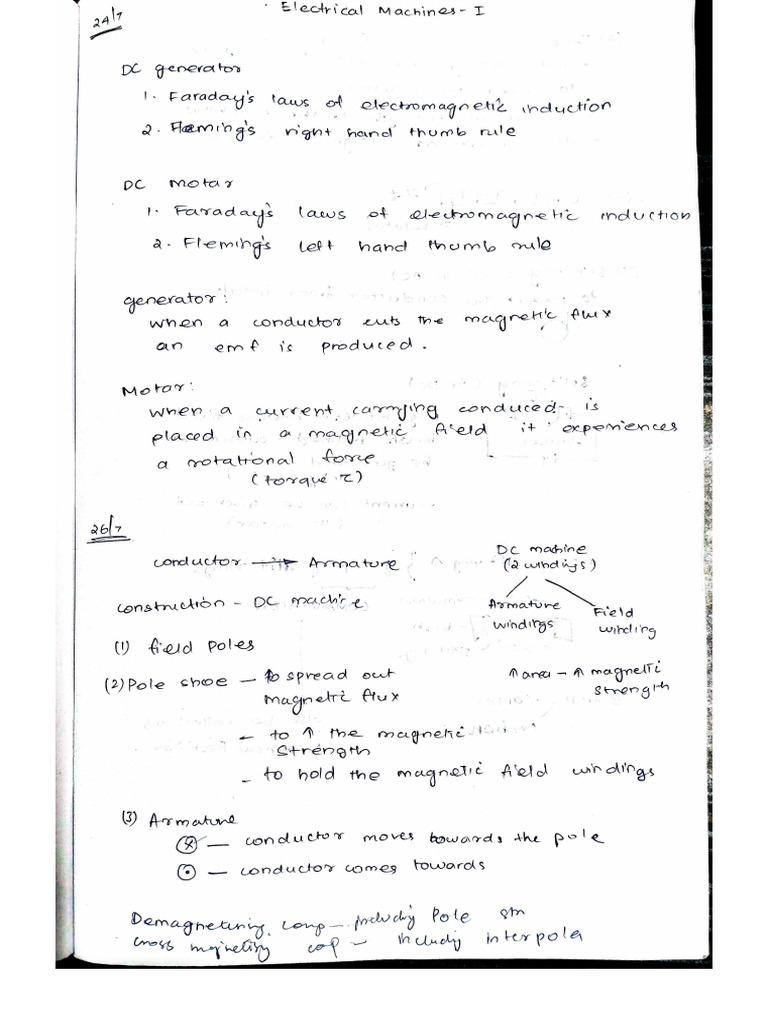 24/7
Electrical Machines - I
DC generator
1. Faraday's laws of electromagnetic induction
2. Fleming's right hand thumb rule
DC Motar
1. Faraday's laws of electromagnetic induction
2. Fleming's left hand thumb rule
generator:
when a conductor cuts the magnetic flux
an emf is produced.
Motar:
when a current carrying conduced is
placed in a magnetic field it experiences
a rotational force
(torque τ)
26/7
conductor → Armature
DC machine
(2 windigs)
Armature
windings
Field
winding
construction - DC machine
(1) field poles
(2) Pole shoe - to spread out
magnetic flux
↑ area - ↑ magnetic
strength
- to ↑ the magnetic
strength
- to hold the magnetic field windings
(3) Armature
ⓧ - conductor moves towards the pole
⊙ - conductor comes towards
Pole
cross
interpoles